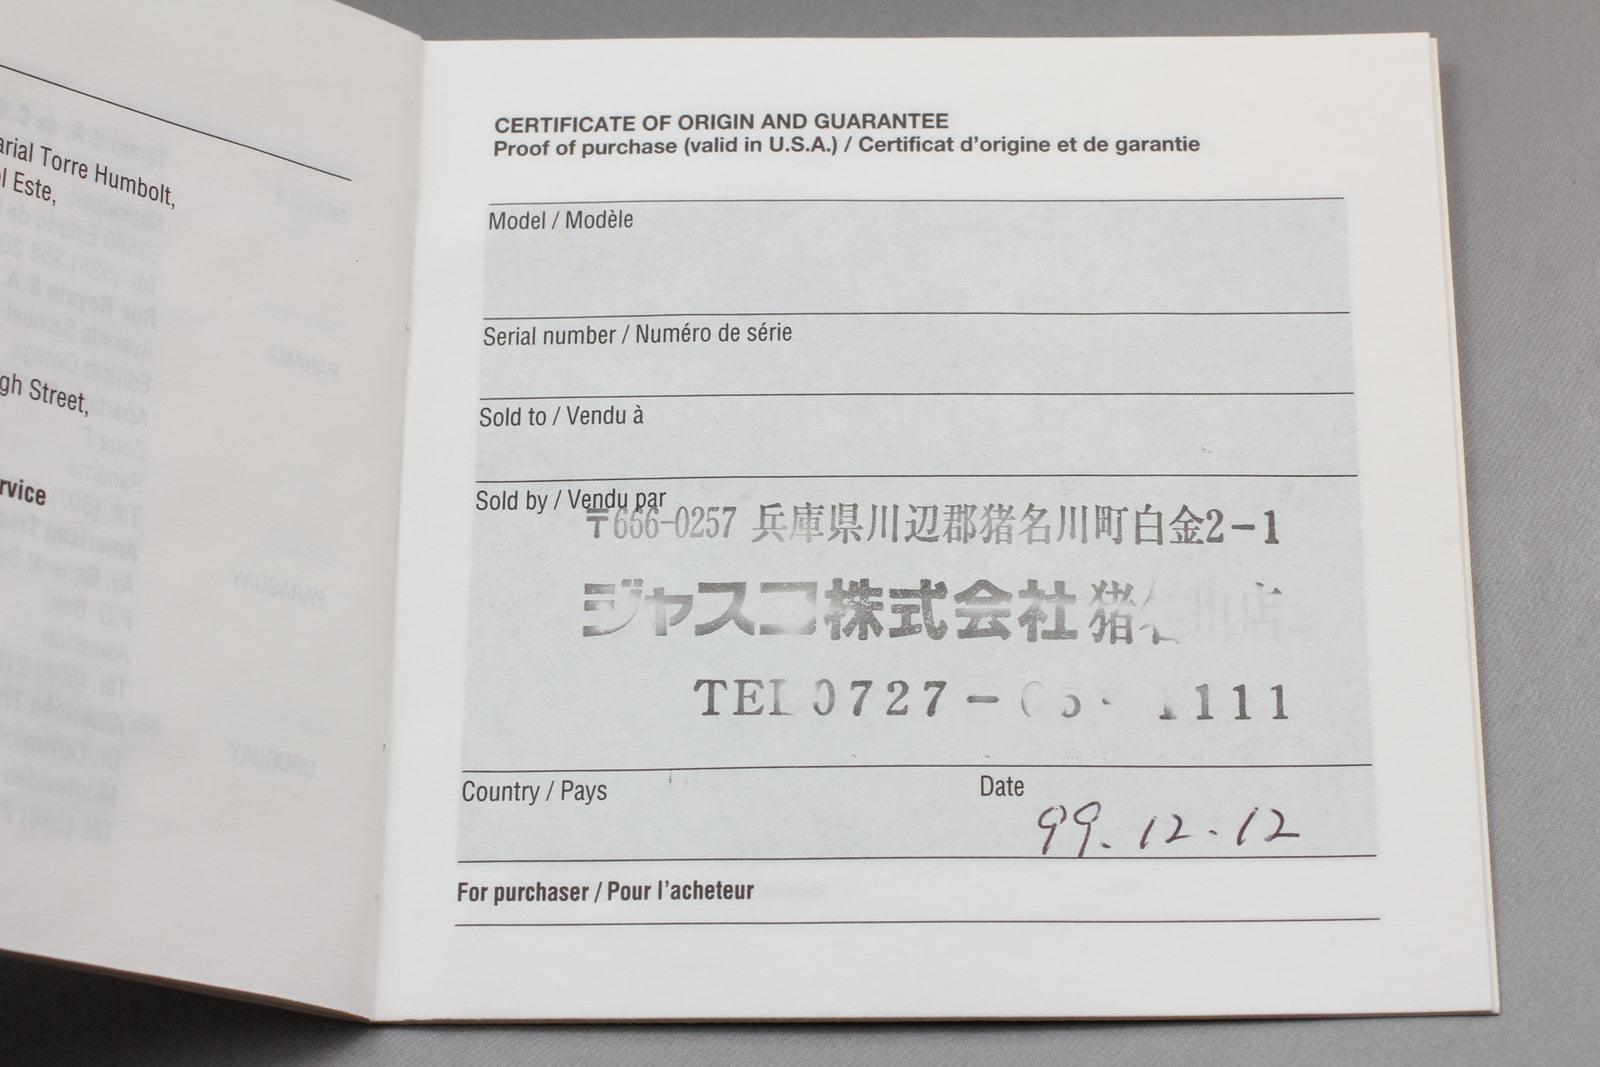 arial Torre Humbolt,
l Este,
gh Street,
rvice
MEXIQUE
PANAMA
PARAGUAY
URUGUAY
CERTIFICATE OF ORIGIN AND GUARANTEE
Proof of purchase (valid in U.S.A.) / Certificat d'origine et de garantie
Model / Modèle
Serial number / Numéro de série
Sold to / Vendu à
Sold by / Vendu par
〒666-0257 兵庫県川辺郡猪名川町白金2-1
ジャスコ株式会社 猪名川店
TEL 0727- 1111
Country / Pays
Date
99.12.12
For purchaser / Pour l'acheteur